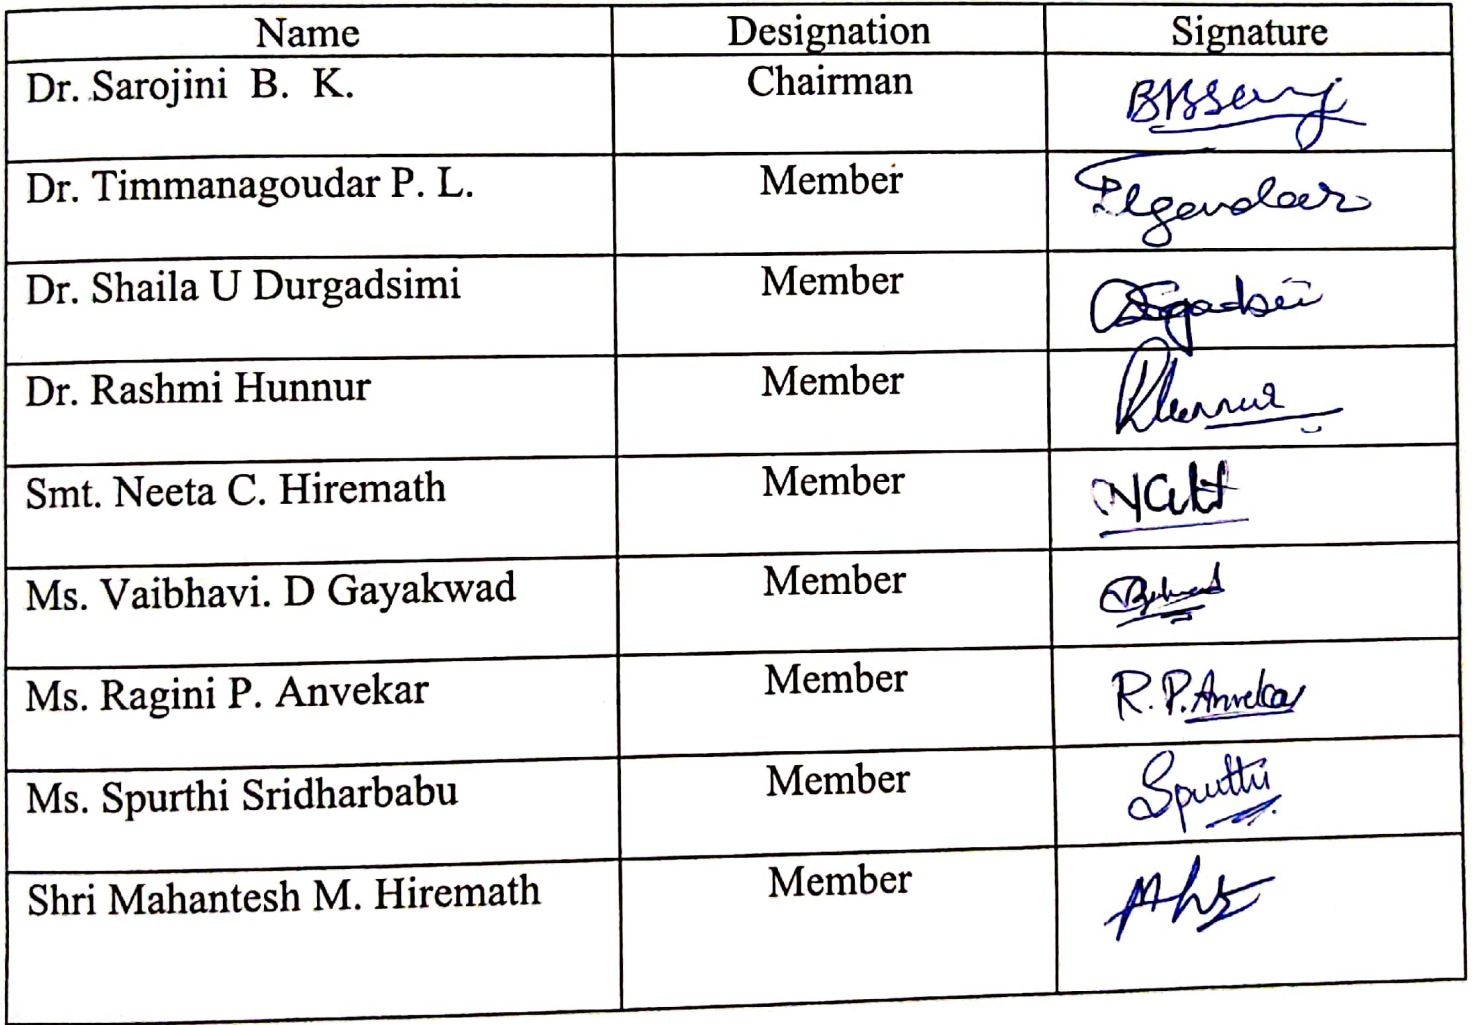 Name Designation Signature
Dr. Sarojini B. K. Chairman
Dr. Timmanagoudar P. L. Member
Dr. Shaila U Durgadsimi Member
Dr. Rashmi Hunnur Member
Smt. Neeta C. Hiremath Member
Ms. Vaibhavi. D Gayakwad Member
Ms. Ragini P. Anvekar Member R. P. Anvekar
Ms. Spurthi Sridharbabu Member Spurthi
Shri Mahantesh M. Hiremath Member